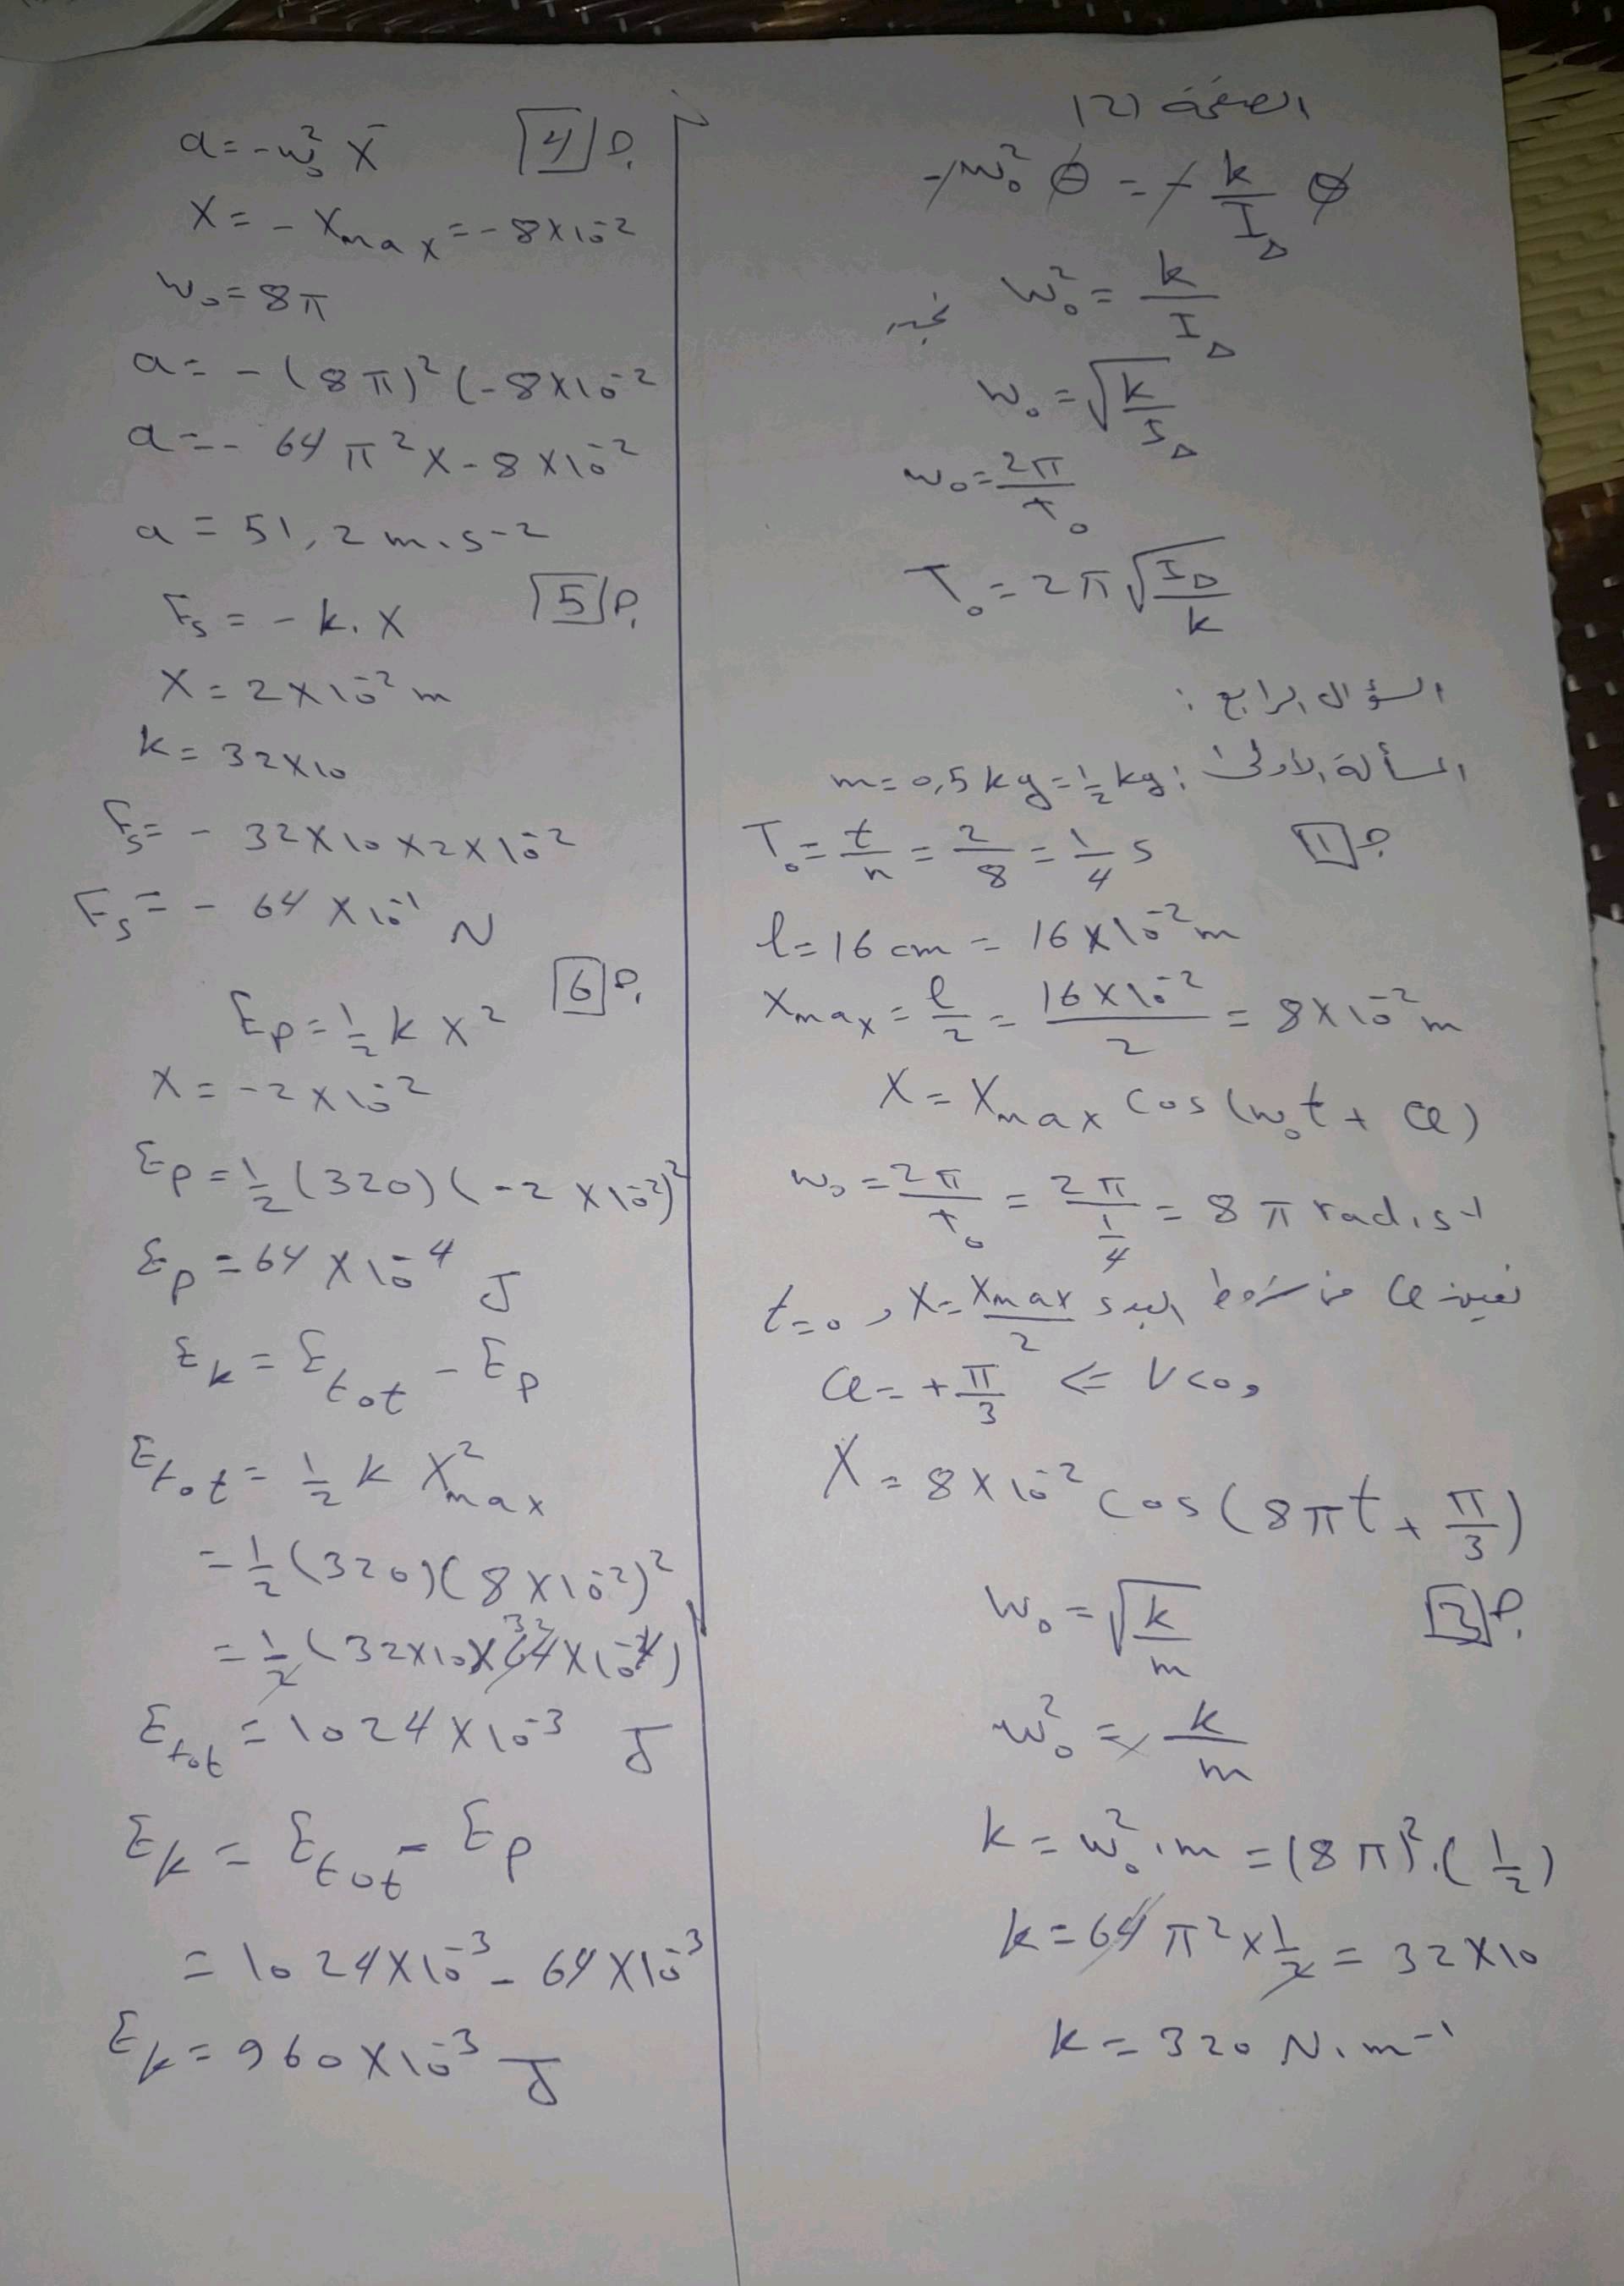 الصفحة (2)
-ω₀² θ = - k/I_Δ θ
نجد ω₀² = k/I_Δ
ω₀ = √(k/I_Δ)
ω₀ = 2π/T₀
T₀ = 2π √(I_Δ/k)
السؤال الرابع :
المسألة الأولى: m = 0,5 kg = 1/2 kg
1
T₀ = t/n = 2/8 = 1/4 s
l = 16 cm = 16 × 10⁻² m
Xmax = l/2 = 16×10⁻²/2 = 8×10⁻² m
X = Xmax cos(ω₀t + φ)
ω₀ = 2π/T₀ = 2π/(1/4) = 8π rad.s⁻¹
نعين φ من شروط البدء t=0 , X = Xmax/2
φ = +π/3 ⇐ V<0 و
X = 8×10⁻² cos(8πt + π/3)
3
ω₀ = √(k/m)
ω₀² = k/m
k = ω₀².m = (8π)².(1/2)
k = 64π² × 1/2 = 32×10
k = 320 N.m⁻¹
4
a = -ω₀² X̄
X = - Xmax = -8×10⁻²
ω₀ = 8π
a = -(8π)² (-8×10⁻²
a = - 64π² × -8×10⁻²
a = 51,2 m.s-2
5
Fs = - k. X
X = 2×10⁻² m
k = 32×10
Fs = - 32×10×2×10⁻²
Fs = - 64×10⁻¹ N
6
Ep = 1/2 k X²
X = -2×10⁻²
Ep = 1/2 (320)(-2×10⁻²)²
Ep = 64×10⁻⁴ J
Ek = Etot - Ep
Etot = 1/2 k X²max
= 1/2 (320)(8×10⁻²)²
= 1/2 (32×10×64×10⁻⁴)
Etot = 1024×10⁻³ J
Ek = Etot - Ep
= 1024×10⁻³ - 64×10⁻³
Ek = 960×10⁻³ J